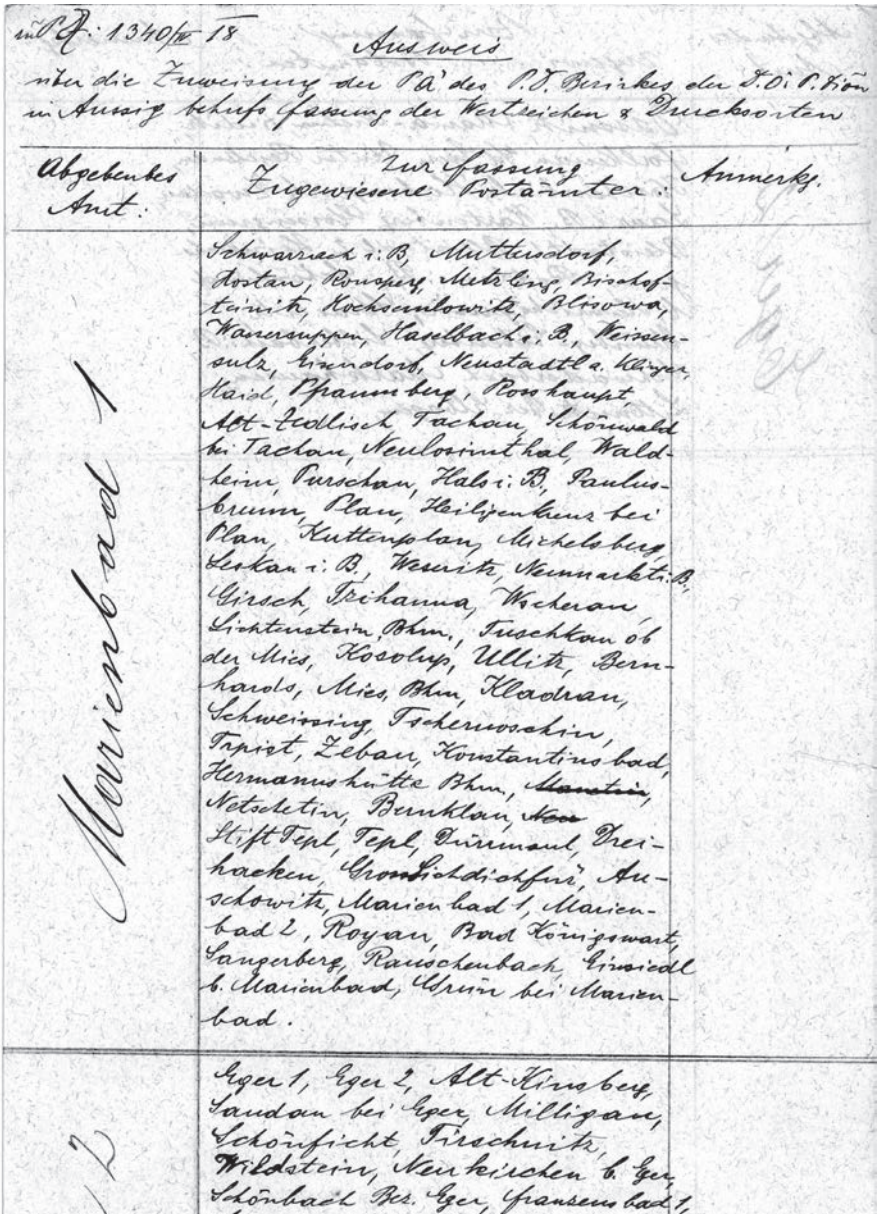 zu PZ: 1340/IV 18
Ausweis
über die Zuweisung der PÄ des P.D. Bezirkes der D.Ö.P. Dion
in Aussig behufs Fassung der Wertzeichen & Drucksorten
Abgebendes
Amt:
Zur Fassung
Zugewiesene Postämter:
Anmerkg.
Marienbad 1
Schwarzach i. B, Muttersdorf,
Hostau, Ronsperg, Metzling, Bischof-
teinitz, Hochsemlowitz, Blisowa,
Wassersuppen, Haselbach i. B., Weissen-
sulz, Eisendorf, Neustadtl a. Klinger,
Haid, Pfraumberg, Rosshaupt,
Alt-Zedlisch Tachau, Schönwald
bei Tachau, Neulosimthal, Wald-
heim, Purschau, Hals i. B, Paulus-
brunn, Plan, Heiligenkreuz bei
Plan, Kuttenplan, Michelsberg,
Leskau i. B., Weseritz, Neumarkt i. B.,
Girsch, Trihanna, Wscherau,
Lichtenstein, Bhm., Tuschkau ob
der Mies, Kosolup, Ullitz, Bern-
hards, Mies, Bhm, Kladrau,
Schweissing, Tschernoschin,
Trpist, Zebau, Konstantinsbad,
Hermannshütte Bhm., Manetin,
Netschetin, Bernklau, Neu
Stift Tepl, Tepl, Dürrmaul, Drei-
hacken, Gross Sichdichfür, Au-
schowitz, Marienbad 1, Marien-
bad 2, Royau, Bad Königswart,
Sangerberg, Rauschenbach, Einsiedl
b. Marienbad, Grün bei Marien-
bad.
2
Eger 1, Eger 2, Alt-Kinsberg,
Sandau bei Eger, Milligau,
Schönficht, Tirschnitz,
Wildstein, Neukirchen b. Eger,
Schönbach Bez. Eger, Franzensbad 1,